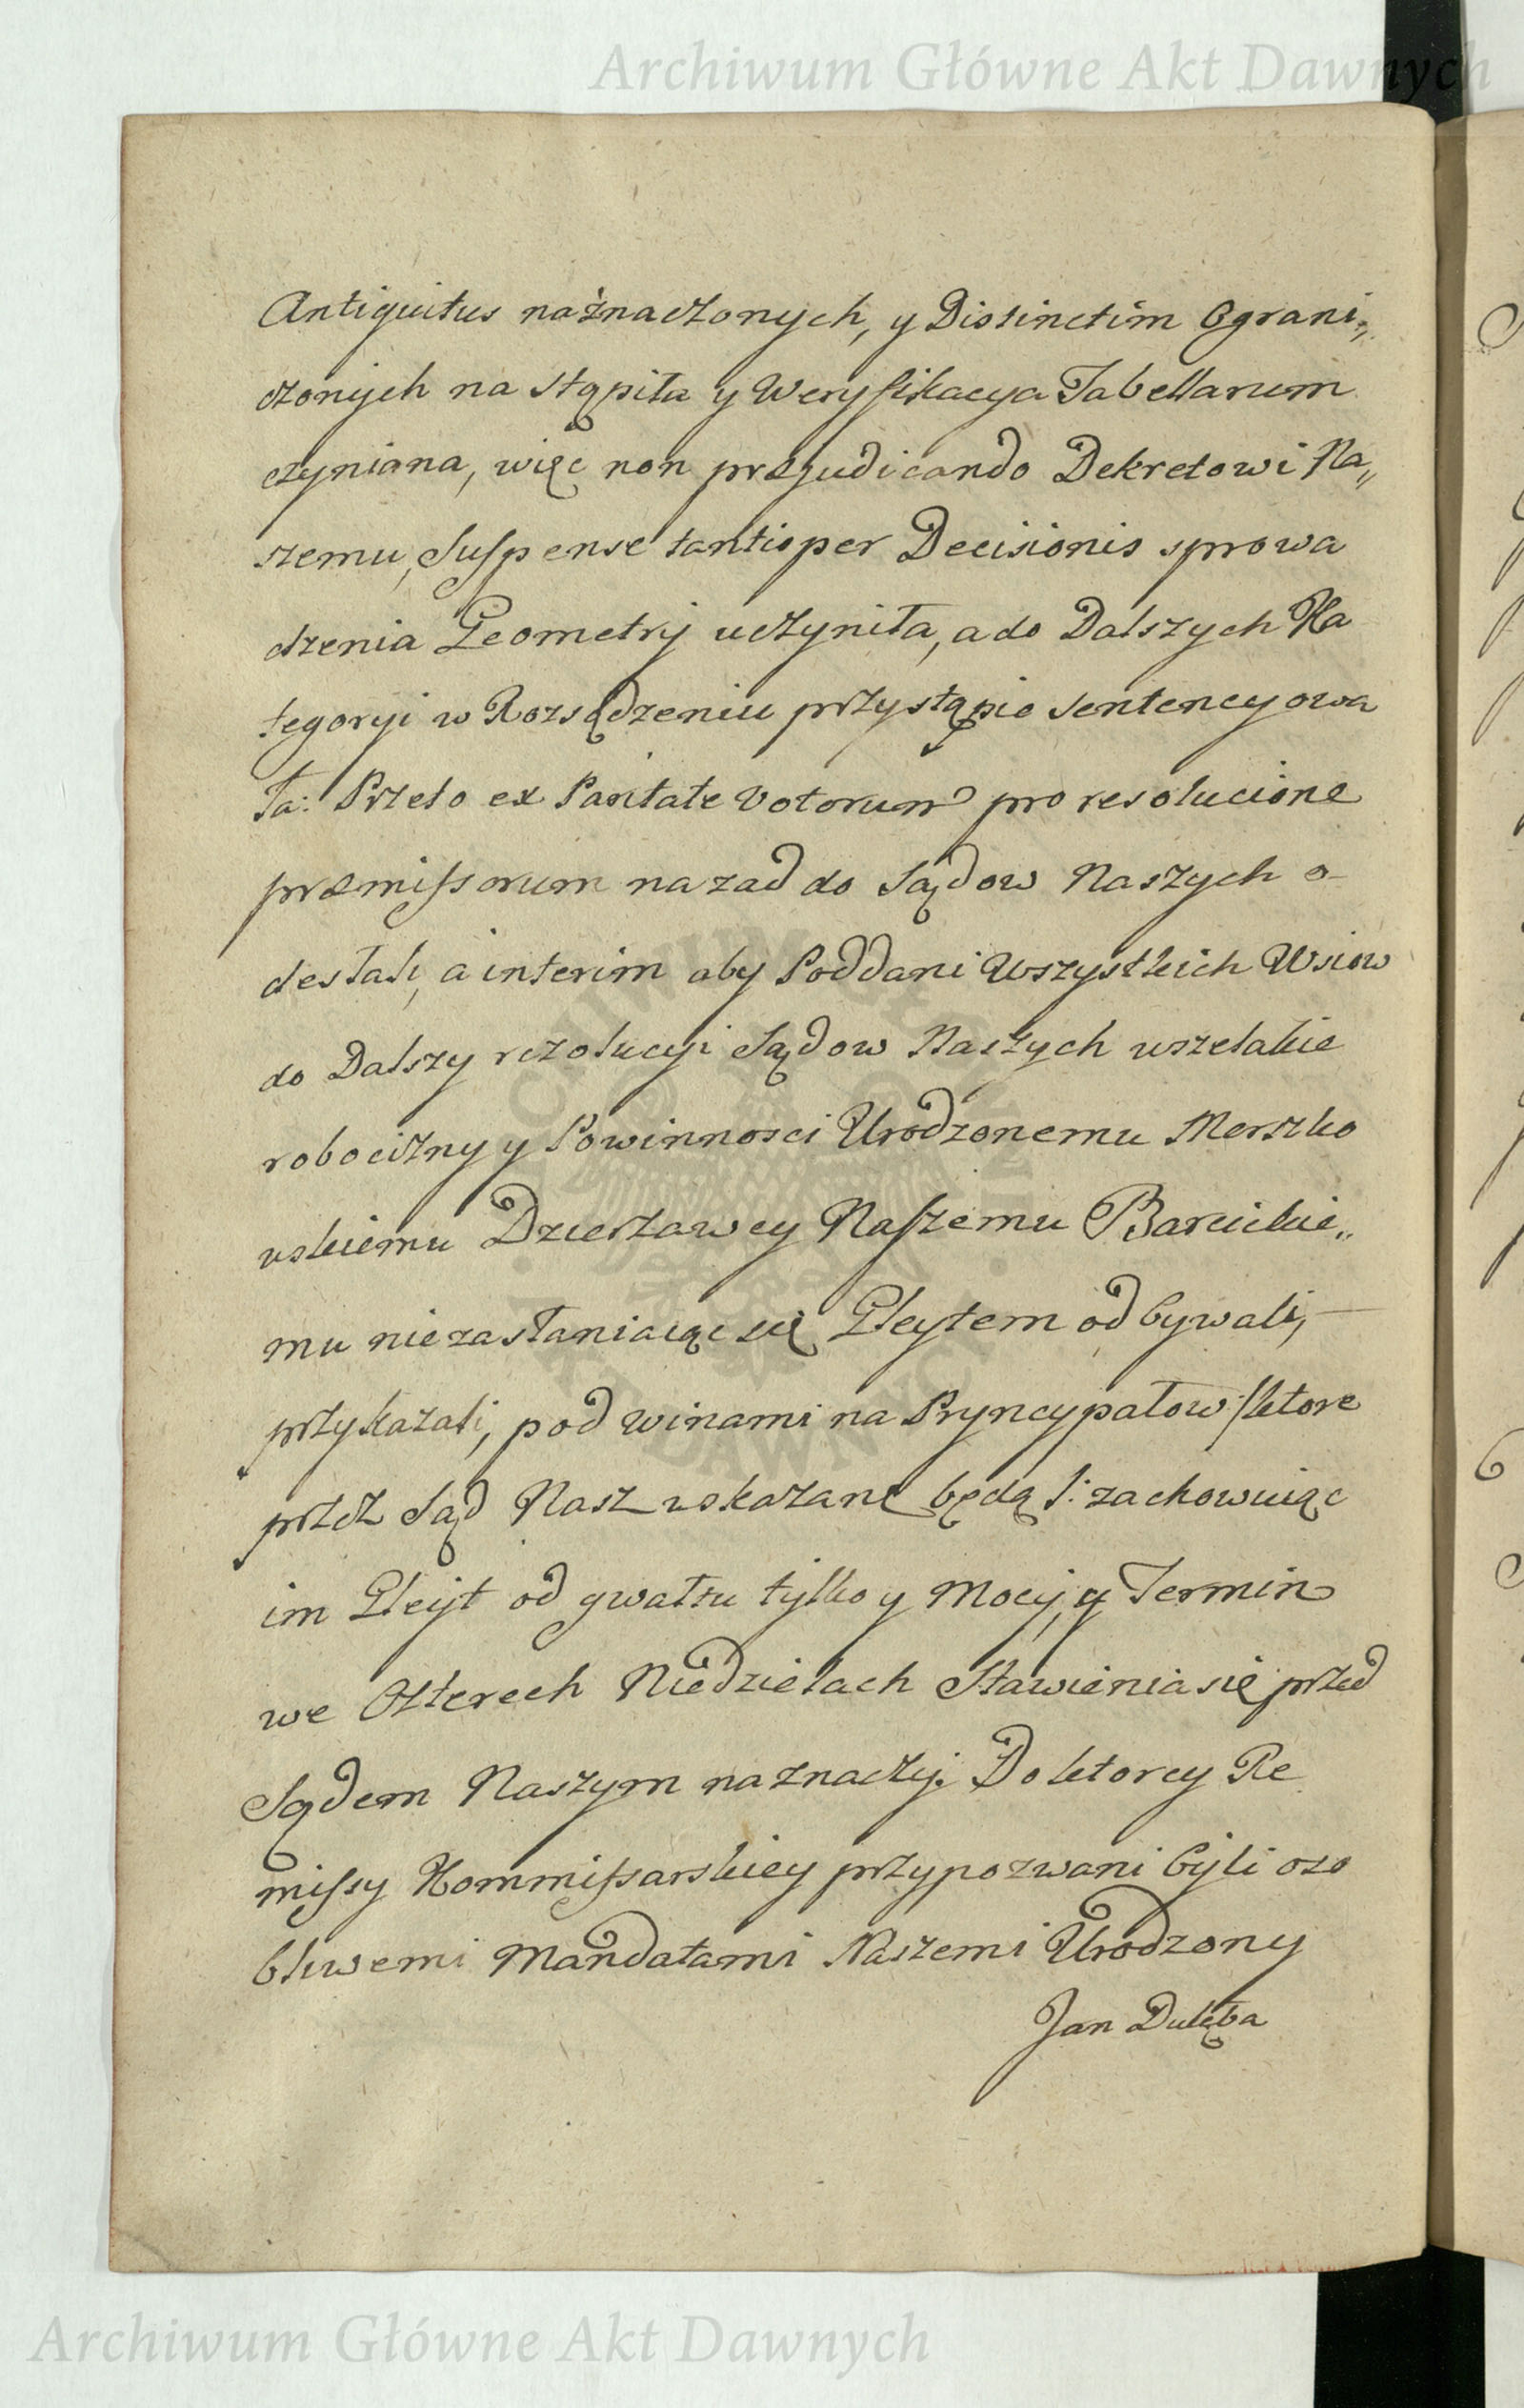 Archiwum Główne Akt Dawnych
Antiquitus naznaczonych, y Distinctim Ograni„
czonych na stąpiła y Weryfikacya Tabellarum
czyniana, więc non præjudicando Dekretowi Na„
szemu, Suspense tantisper Decisionis sprowa
dzenia Geometry uczyniła, a do Dalszych Ka
tegoryi w Rozsądzeniu przystąpić sentencyowa
ła: Przeto ex Paritate Votorum pro resolucione
præmissorum nazad do Sądow Naszych o-
desłali, a interim aby Poddani Wszystkich Wsiow
do Dalszy rezolucyi Sądow Naszych wszelakie
robocizny y Powinnosci Urodzonemu Merszko
wskiemu Dzierzawcy Naszemu Barcickie„
mu niezasłaniaiąc się Gleytem odbywali,
przykazali, pod winami na Pryncypałow /:ktore
przez Sąd Nasz wskazane będą :/ zachowuiąc
im Gleyt od gwałtu tylko y Mocy, y Termin
we Czterech Niedzielach Stawienia się przed
Sądem Naszym naznaczyj. Do ktorey Re
missy Kommissarskiey przypozwani byli oso
bliwemi Mandatami Naszemi Urodzony
Jan Dulęba
Archiwum Główne Akt Dawnych